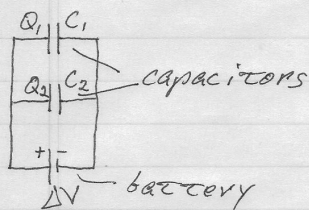 Q₁ C₁
Q₂ C₂
capacitors
+ -
battery
ΔV